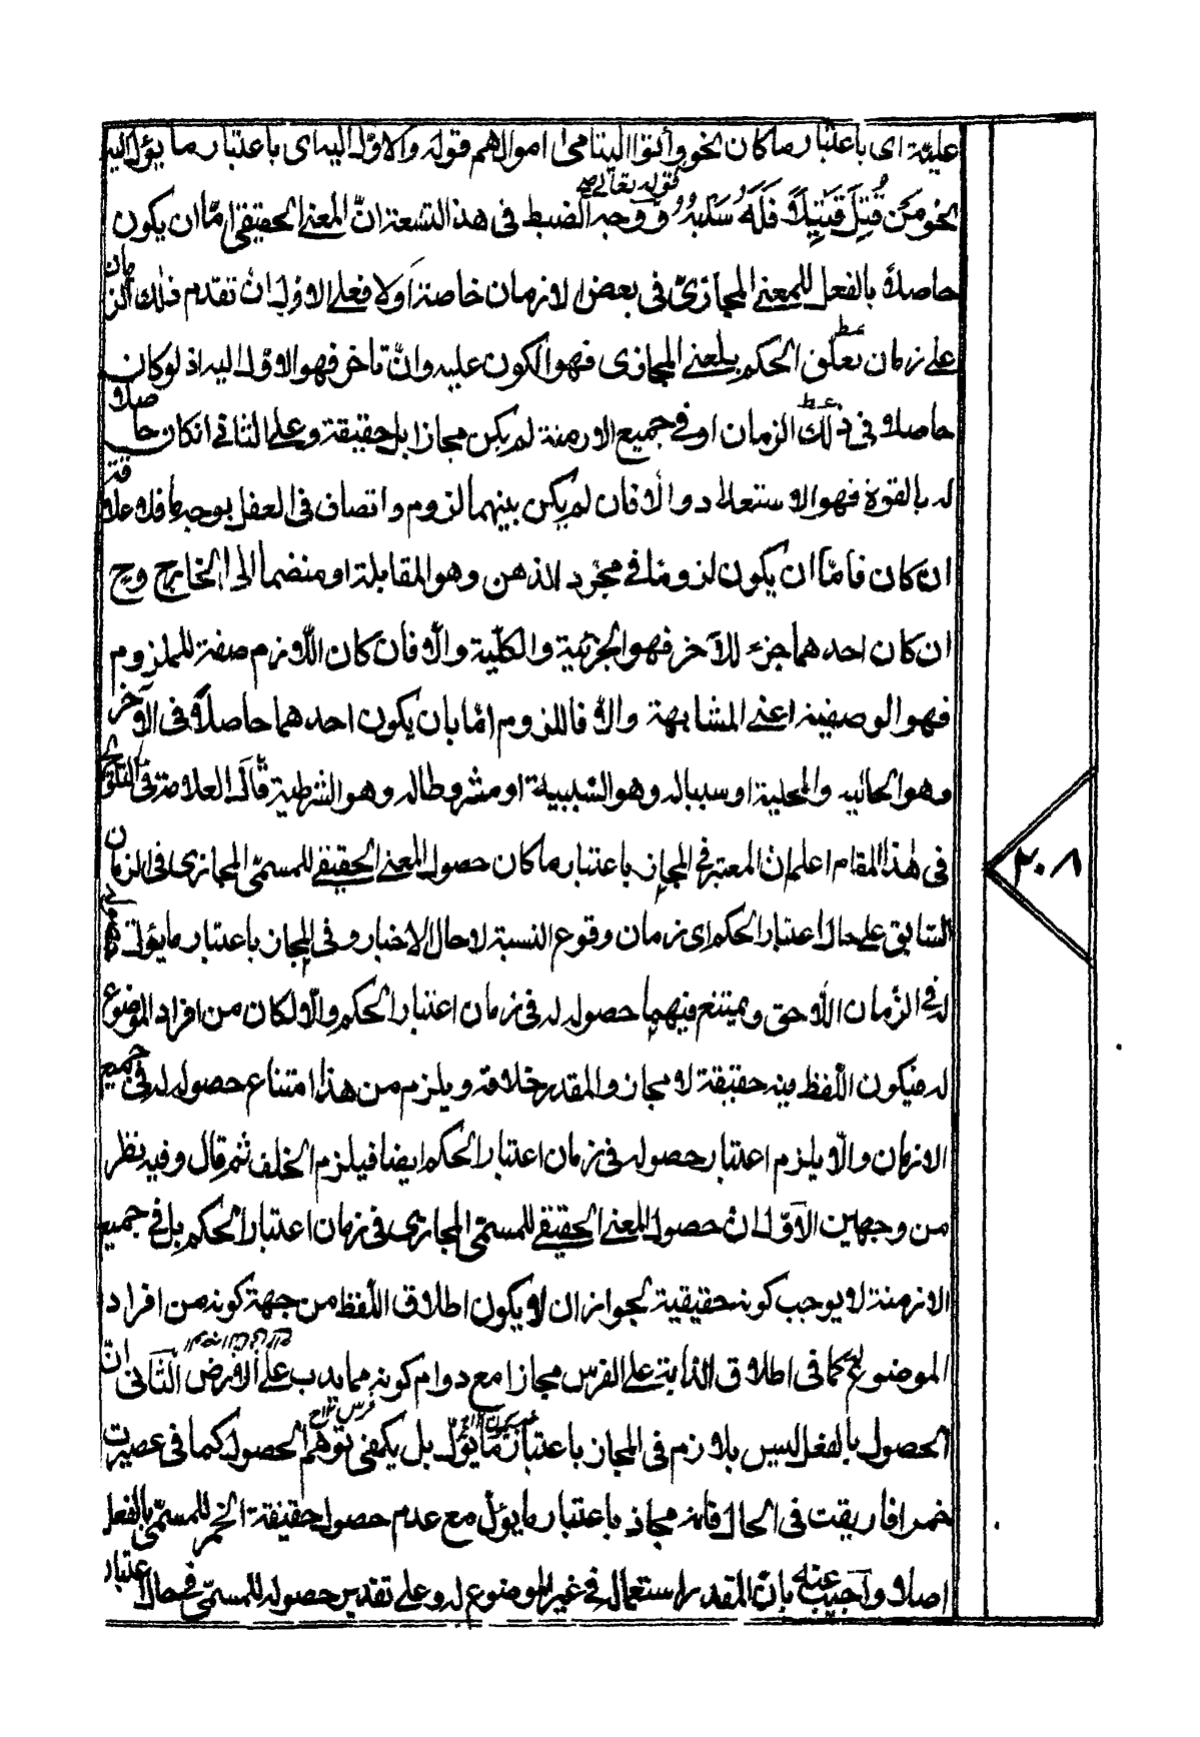 عليه اى باعتبار ما كان نحو وأتوا اليتامى اموالهم قوله والاول اليه اى باعتبار ما يؤل اليه
قوله تعالى
نحو من قُتِلَ قتيلاً فَلَهُ سَلَبُهُ ووجه الضبط فى هذ التسعة انّ المعنى الحقيقى امّا ان يكون
حاصلاً بالفعل للمعنى المجازىّ فى بعض الازمان خاصة اولا فعلى الاول ان تقدم ذلك الزمان
على زمان تعلق الحكم بلعنى المجازى فهو الكون عليه وانْ تأخر فهو الاول اليه اذ لو كان
حاصلا فى ذلك الزمان او فى جميع الازمنة لم يكن مجازا بل حقيقة وعلى الثانى انكان حاصلا
له بالقوة فهو الاستعداد والا فان لم يكن بينهما لزوم واتصاف فى العقل بوجه ما فلا علاقة
ان كان فامّا ان يكون لزوما فى مجرد الذهن وهو المقابلة او منضما الى الخارج وح
ان كان احدهما جزء للآخر فهو الجزئية والكلّية والّا فان كان اللّازم صفة للملزوم
فهو الوصفية اعنى المشابهة والا فاللزوم امّا بان يكون احدهما حاصلاً فى الآخر
وهو الحالية والمحلية او سببا له وهو السّببية او مشروطا له وهو الشرطية قال العلامة فى التلويح
فى هذا المقام اعلم ان المعتبر فى المجاز باعتبار ما كان حصول المعنى الحقيقى للمسمّى المجازى فى الزمان
السّابق على حال اعتبار الحكم اى زمان وقوع النسبة لا حال الاخبار وفى المجاز باعتبار ما يؤل
له فى الزّمان اللّاحق ويمتنع فيهما حصوله له فى زمان اعتبار الحكم والّا لكان من افراد الموضوع
له فيكون اللّفظ فيه حقيقة لا مجاز والمقدر خلافه ويلزم من هذا امتناع حصوله له فى جميع
الازمان والّا يلزم اعتبار حصوله فى زمان اعتبار الحكم ايضا فيلزم الخلف ثم قال وفيه نظر
من وجهين الاوّل ان حصول المعنى الحقيقى للمسمّى المجازى فى زمان اعتبار الحكم بل فى جميع
الازمنة لا يوجب كونه حقيقية لجواز ان لا يكون اطلاق اللّفظ من جهة كونه من افراد
الموضوع كما فى اطلاق الدابة على الفرس مجازا مع دوام كونه مما يدب على الارض الثّانى انّ
الحصول بالفعل ليس بلازم فى المجاز باعتبار ما يؤل بل يكفى توهم الحصول كما فى عصرت
خمرا فاريقت فى الحال فانه مجاز باعتبار ما يؤل مع عدم حصول حقيقة الخمر للمسمّى بالفعل
اصلا واجيب عنه بانّ المقدر استعمال فى غير الموضوع له وعلى تقدير حصوله للمسمّى فى حال اعتبار
٢٠٨